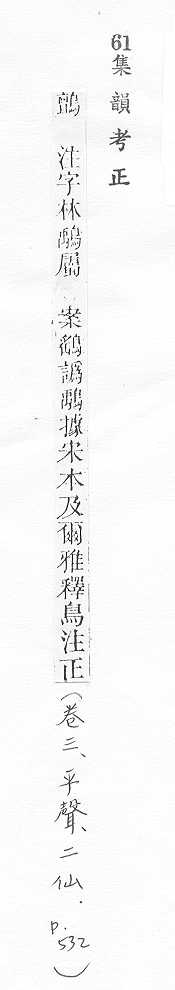 61集韻考正
鸇 注字林屬 案鷂譌據宋本及爾雅釋鳥注正(卷三、平聲、二仙. p.532)